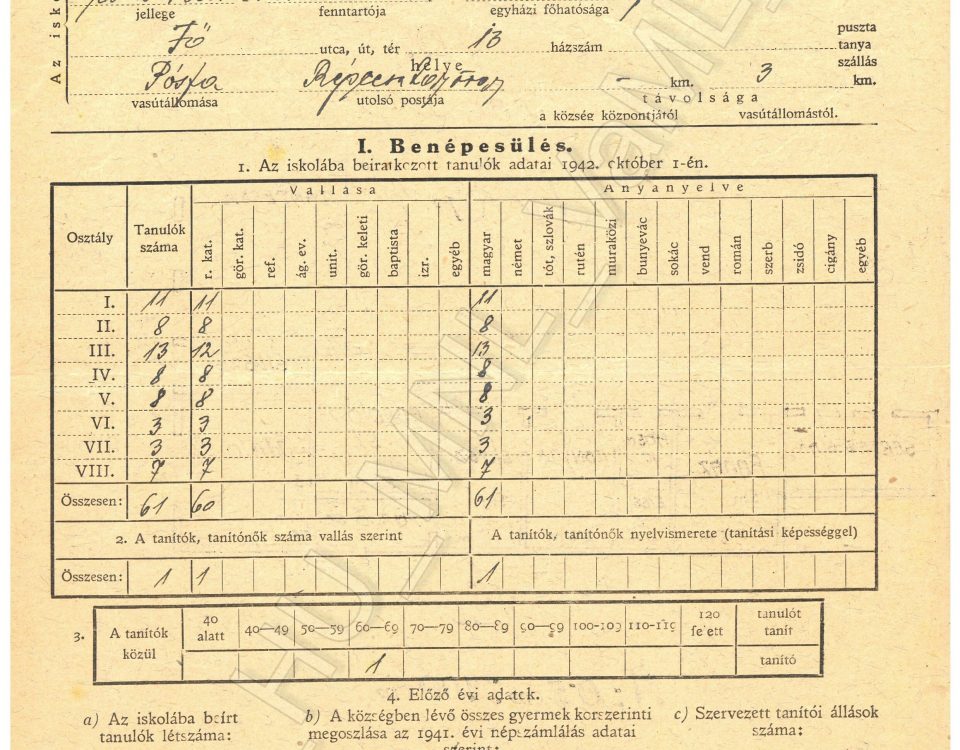 jellege fenntartója egyházi főhatósága
Az isko
Fő utca, út, tér 13 házszám puszta
tanya
helye szállás
Pósfa - km. 3 km.
vasútállomása utolsó postája távolsága
a község központjától vasútállomástól.
I. Benépesülés.
1. Az iskolába beiratkozott tanulók adatai 1942. október 1-én.
Osztály Tanulók száma Vallása Anyanyelve
r. kat. gör. kat. ref. ág. ev. unit. gör. keleti baptista izr. egyéb magyar német tót, szlovák rutén muraközi bunyevác sokác vend román szerb zsidó cigány egyéb
I. 11 11 11
II. 8 8 8
III. 13 12 13
IV. 8 8 8
V. 8 8 8
VI. 3 3 3
VII. 3 3 3
VIII. 7 7 7
Összesen: 61 60 61
2. A tanítók, tanítónők száma vallás szerint A tanítók, tanítónők nyelvismerete (tanítási képességgel)
Összesen: 1 1 1
3. A tanítók közül 40 alatt 40—49 50—59 60—69 70—79 80—89 90—99 100-109 110-119 120 felett tanulót tanít
1 tanító
4. Előző évi adatok.
a) Az iskolába beírt b) A községben lévő összes gyermek korszerinti c) Szervezett tanítói állások
tanulók létszáma: megoszlása az 1941. évi népszámlálás adatai száma:
szerint:
HU_MNL_VaML